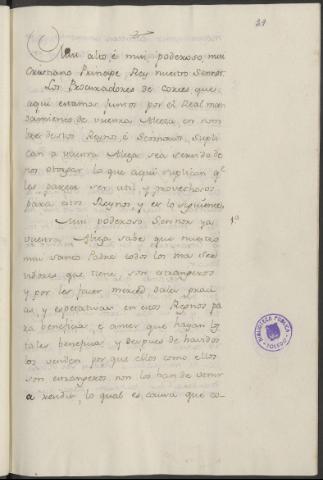 21
Mui alto, é mui poderoso, mui
Christiano Principe Rey nuestro Sennor.
Los Procuradores de Cortes que
aqui estamos juntos por el Real man
damiento de vuestra Alteza, en nom
bre destos Reynos, é Sennorios, supli
can a vuestra Alteza sea servido de
nos otorgar lo que aqui suplican q.e
les parece ser util, y provechoso
para estos Reynos, y es lo siguiente
Mui poderoso Sennor ya 1º
vuestra Alteza sabe que nuestro
mui santo Padre todos los mas ser
vidores que tiene, son estrangeros
y por les facer merced dales graci
as, y espectativas en estos Reynos pa
ra beneficios, é antes que hayan los
tales beneficios, y despues de havidos
los venden por que ellos como ellos
son estrangeros non los han de venir
a rendir, lo qual es causa que co-
BIBLIOTECA PUBLICA
TOLEDO